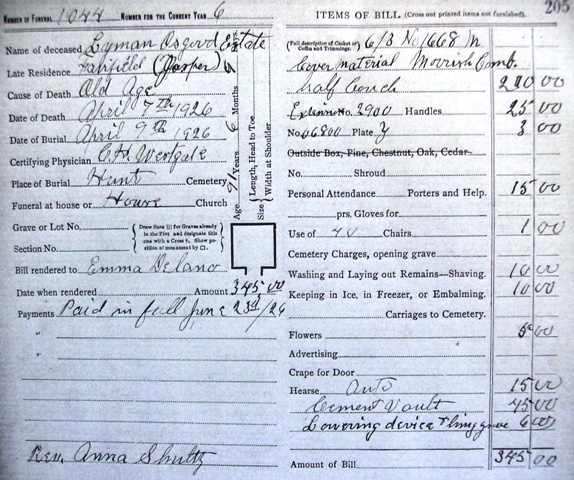 205
NUMBER OF FUNERAL 1044 NUMBER FOR THE CURRENT YEAR 6
Name of deceased Lyman Osgood Estate
Late Residence Fairfield (Jasper)
Cause of Death Old Age
Date of Death April 7th 1926
Date of Burial April 9th 1926
Certifying Physician C H Westgate
Place of Burial Hunt Cemetery
Funeral at house or House Church
Grave or Lot No.
Section No.
Draw lines ||| for Graves already in the Plot and designate this one with a Cross †. Show position of monument by □.
Age 91 Years 6 Months Days
Size Length, Head to Toe
Width at Shoulder
Bill rendered to Emma Delano
Date when rendered Amount 345 00
Payments Paid in full June 23d/26
"
"
Rev. Anna Shultz
ITEMS OF BILL (Cross out printed items not furnished).
(Full description of Casket or Coffin and Trimmings. 6/3 No 1668 M
Cover material Moorish Comb.
half Couch 210 00
No. 2900 Handles 25 00
No. 06800 Plate y 3 00
Outside Box, Pine, Chestnut, Oak, Cedar
No. Shroud
Personal Attendance Porters and Help. 15 00
prs. Gloves for
Use of 40 Chairs 1 00
Cemetery Charges, opening grave
Washing and Laying out Remains—Shaving. 10 00
Keeping in Ice, in Freezer, or Embalming. 10 00
Carriages to Cemetery.
Flowers 5 00
Advertising
Crape for Door
Hearse Auto 15 00
Cement Vault 45 00
Lowering device & lining grave 6 00
Amount of Bill 345 00